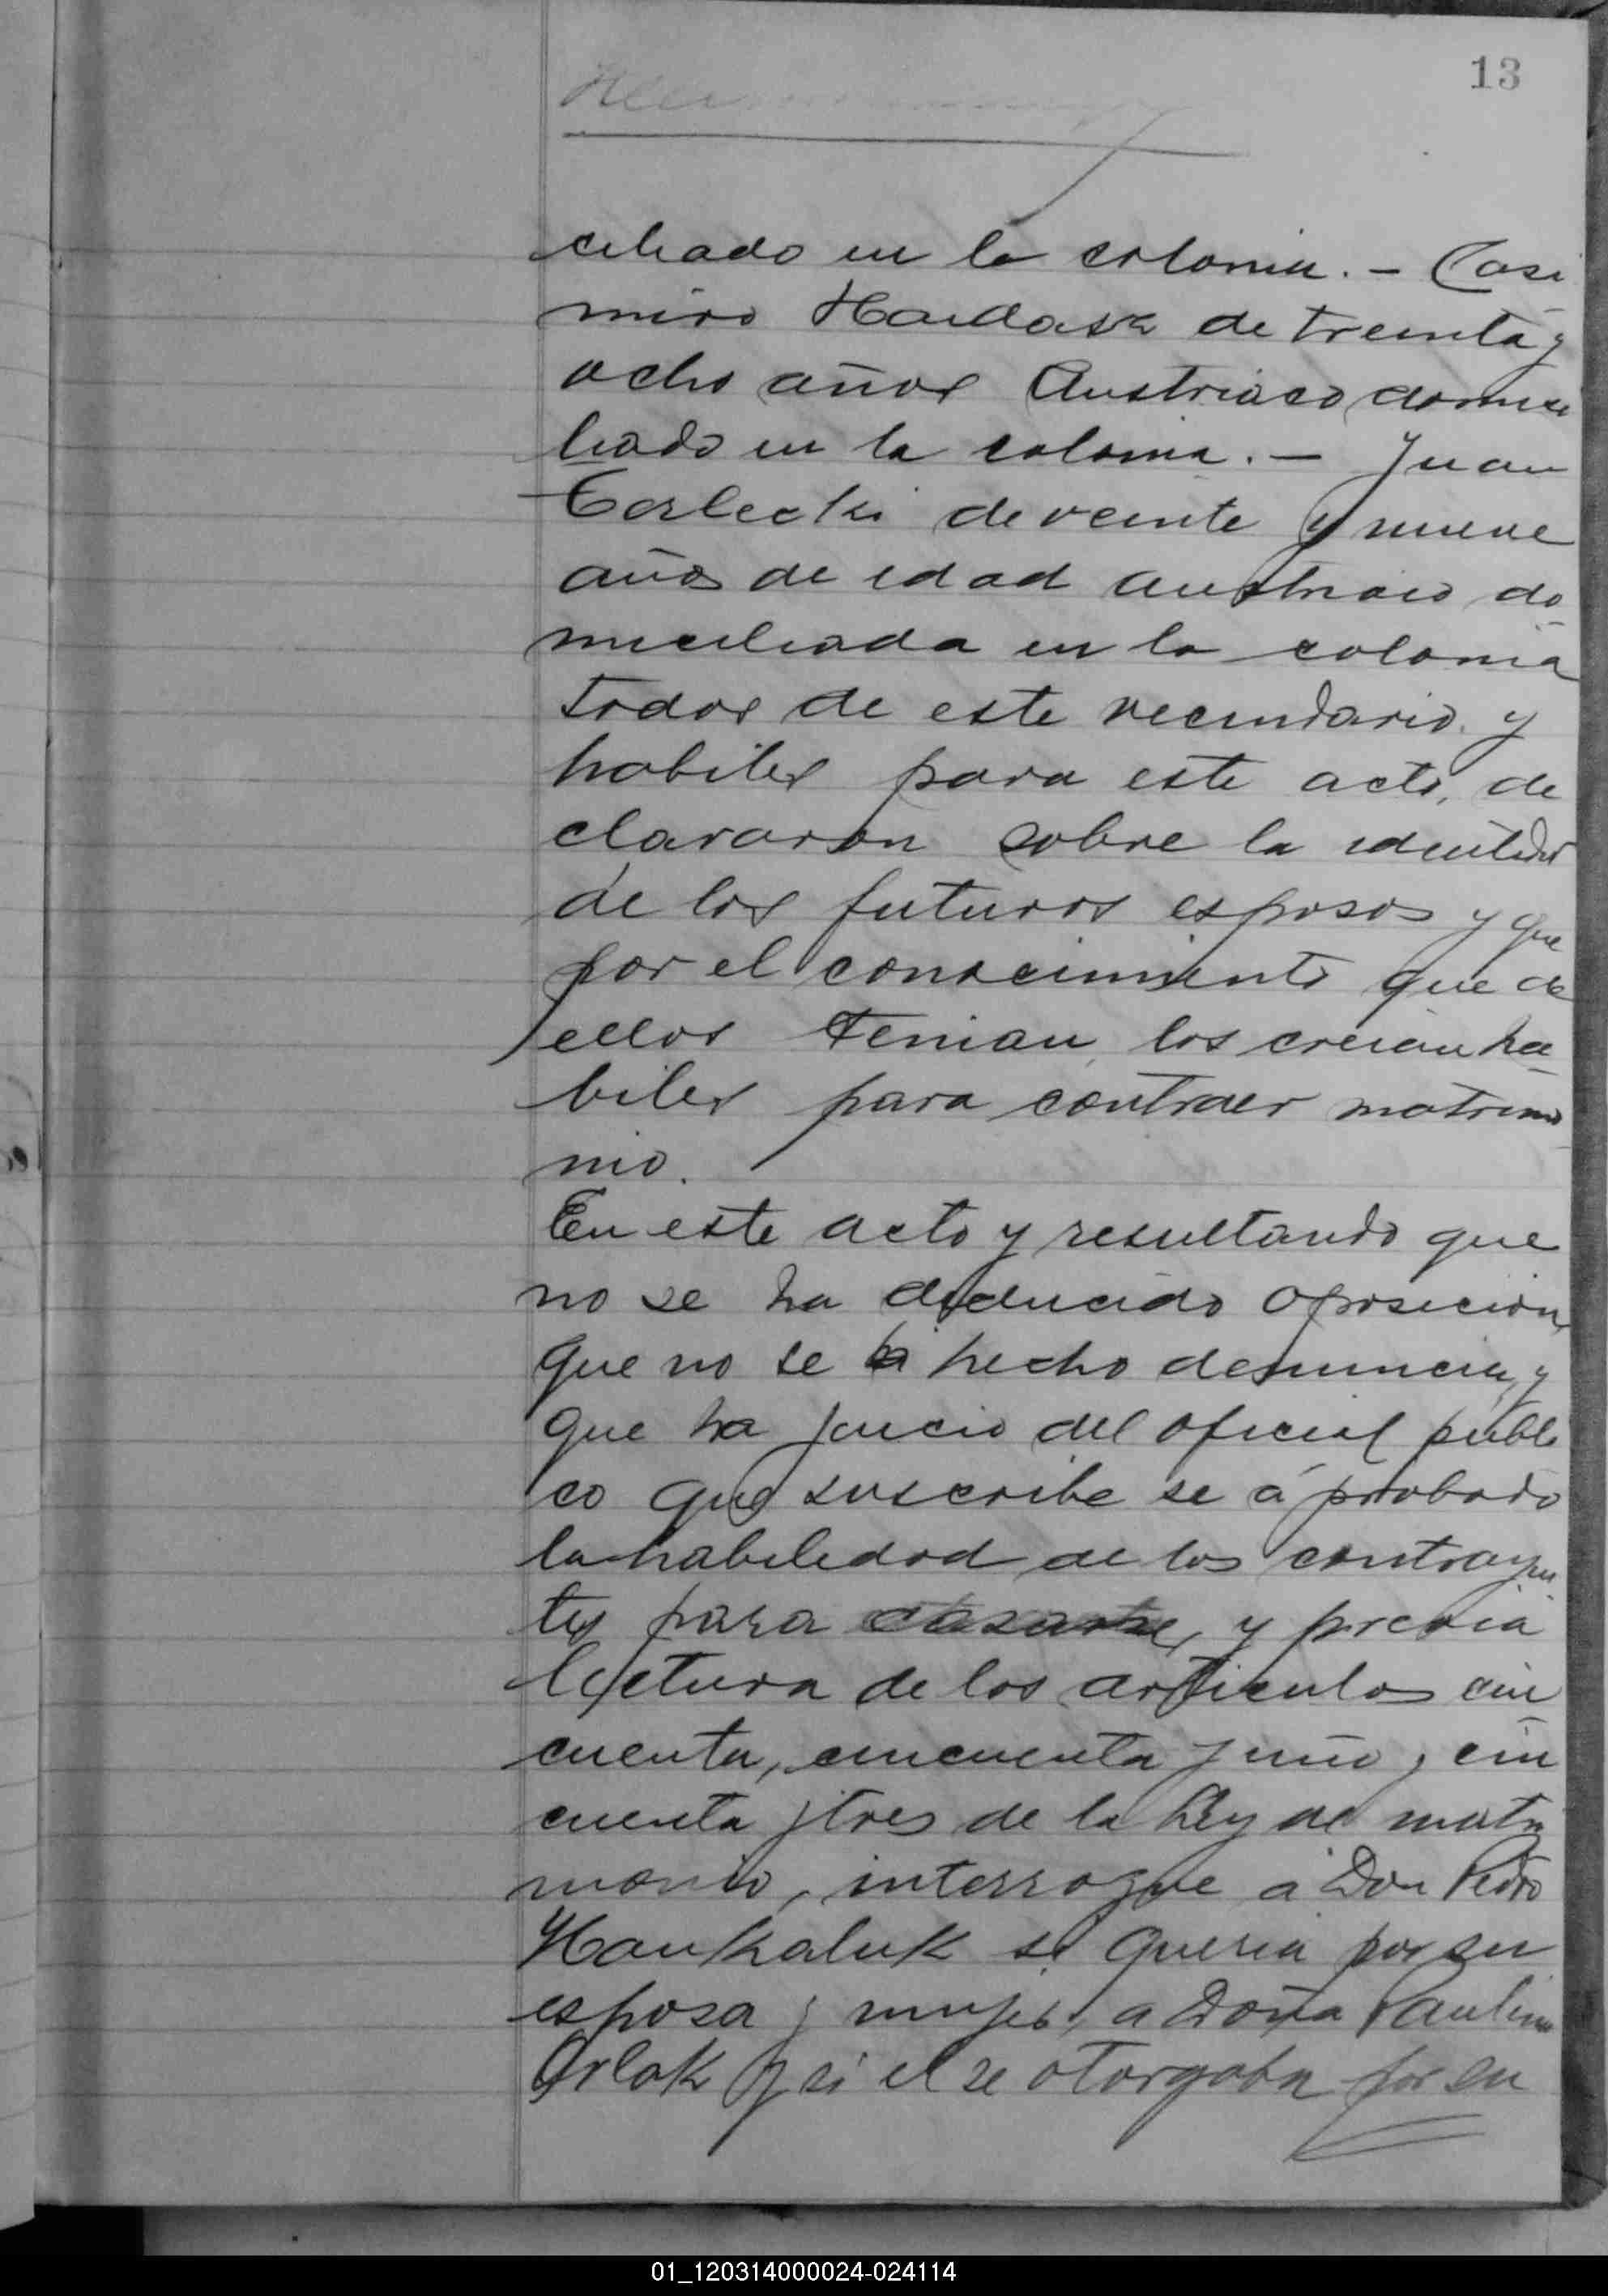 13
ciliado en la colonia. - Casi
miro Haidasz de treinta y
ocho años Austriaco domici
liado en la colonia. - Juan
Terlecki de veinte y nueve
años de edad austriaco do
miciliada en la colonia
todos de este vecindario y
habiles para este acto, de
clararon sobre la identidad
de los futuros esposos y que
por el conocimiento que de
ellos tenian, los creian ha
biles para contraer matrimo
nio.
En este acto y resultando que
no se ha deducido oposicion,
que no se ha hecho denuncia, y
que ha juicio del oficial publi
co que suscribe se á probado
la habilidad de los contrayen
tes para casarse, y previa
lectura de los articulos cin
cuenta, cincuenta y uno, cin
cuenta y tres de la Ley de matri
monio, interrogue a Don Pedro
Haukaluk si queria por su
esposa y mujer, a Doña Paulina
Orlok y si el se otorgaba por su
01_120314000024-024114